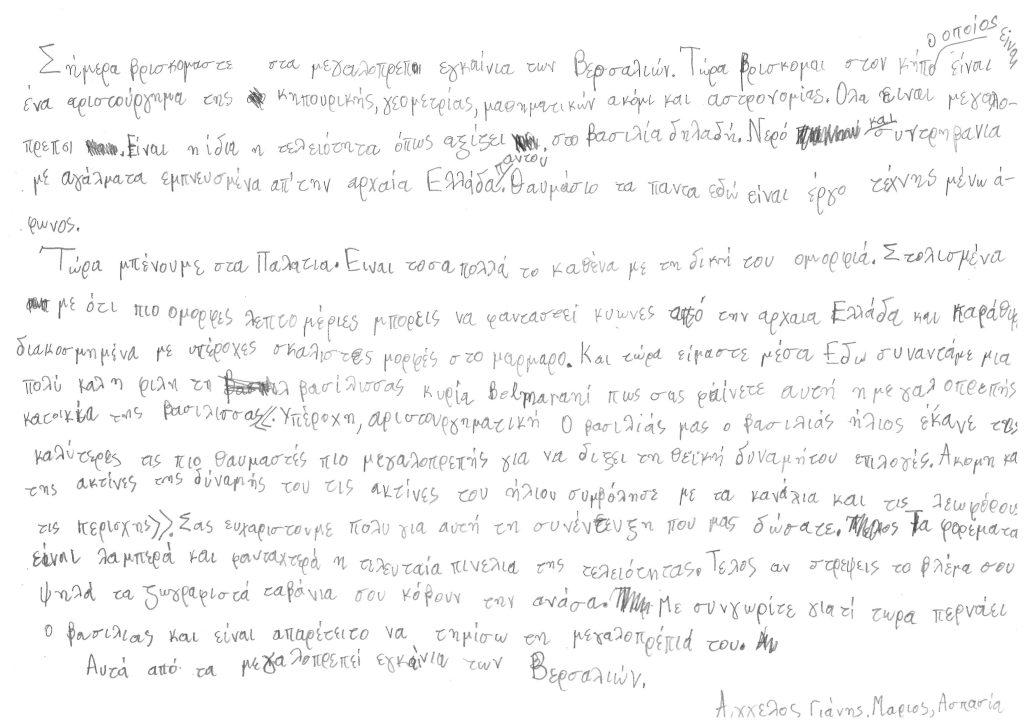 ο οποίος είναι
Σήμερα βρισκομαστε στα μεγαλοπρεπη εγκαίνια των Βερσαλιών. Τώρα βρισκομαι στον κήπο είναι
ένα αριστούργημα της κηπουρικής, γεομετρίας, μαθηματικών ακόμι και αστρονομίας. Ολα είναι μεγαλο-
πρεποι. Είναι η ίδια η τελειότητα όπως αξίζει στο βασιλία δηλαδή. Νερό και συντρηβανια
με αγάλματα εμπνευσμένα απ'την αρχαία Ελλάδα παντού. Θαυμάσιο τα παντα εδώ είναι έργο τέχνης μένω ά-
φωνος.
Τώρα μπένουμε στα Παλατια. Ειναι τοσα πολλά το καθένα με τη δική του ομορφιά. Στολισμένα
με ότι πιο ομορφες λεπτομέριες μπορεις να φανταστεί κιωνες από την αρχαια Ελλάδα και
διακοσμημένα με υπέροχες σκαλιστες μορφές στο μαρμαρο. Και τώρα είμαστε μέσα Εδω συναντάμε μια
πολύ καλη φιλη τη βασίλισσας κυρία πως σας φαίνετε αυτή η μεγαλοπρεπής
κατοικία της βασιλισσας<<. Υπέροχη, αριστουργηματική Ο βασιλιάς μας ο βασιλιάς ήλιος έκανε τις
καλύτερες τις πιο θαυμαστές πιο μεγαλοπρεπής για να διξει τη θεϊκή δυναμή του επιλογές. Ακομη κα
της ακτίνες της δύναμής του τις ακτίνες του ήλιου συμβόλησε με τα κανάλια και τις λεωφόρου
τις περισχης>>. Σας ευχαριστουμε πολυ για αυτή τη συνέντευξη που μας δώσατε. Τα φορεματα
είναι λαμπερά και φανταχτερά η τελευταία πινελια της τελειότητας. Τελος αν στρεψεις το βλέμα σου
ψηλά τα ζωγραφιστά ταβάνια σου κόβουν την ανάσα. Με συνγωρίτε γιατί τωρα περνάει
ο βασιλιας και είναι απαρέτειτο να τημίσω τη μεγαλοπρέπιά του.
Αυτά από τα μεγαλοπρεπεί εγκαίνια των Βερσαλιών.
Αγγελος Γιάνης, Μαριος, Ασπασία